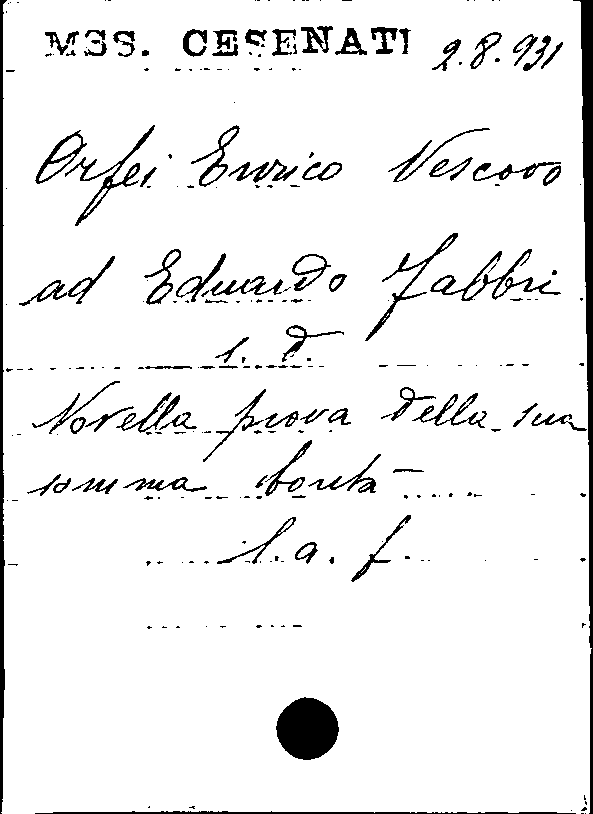 MSS. CESENATI 2.8.931
Orfei Enrico Vescovo
ad Eduardo Fabbri
s. d.
Novella prova della sua
somma bontà
l. a. f.